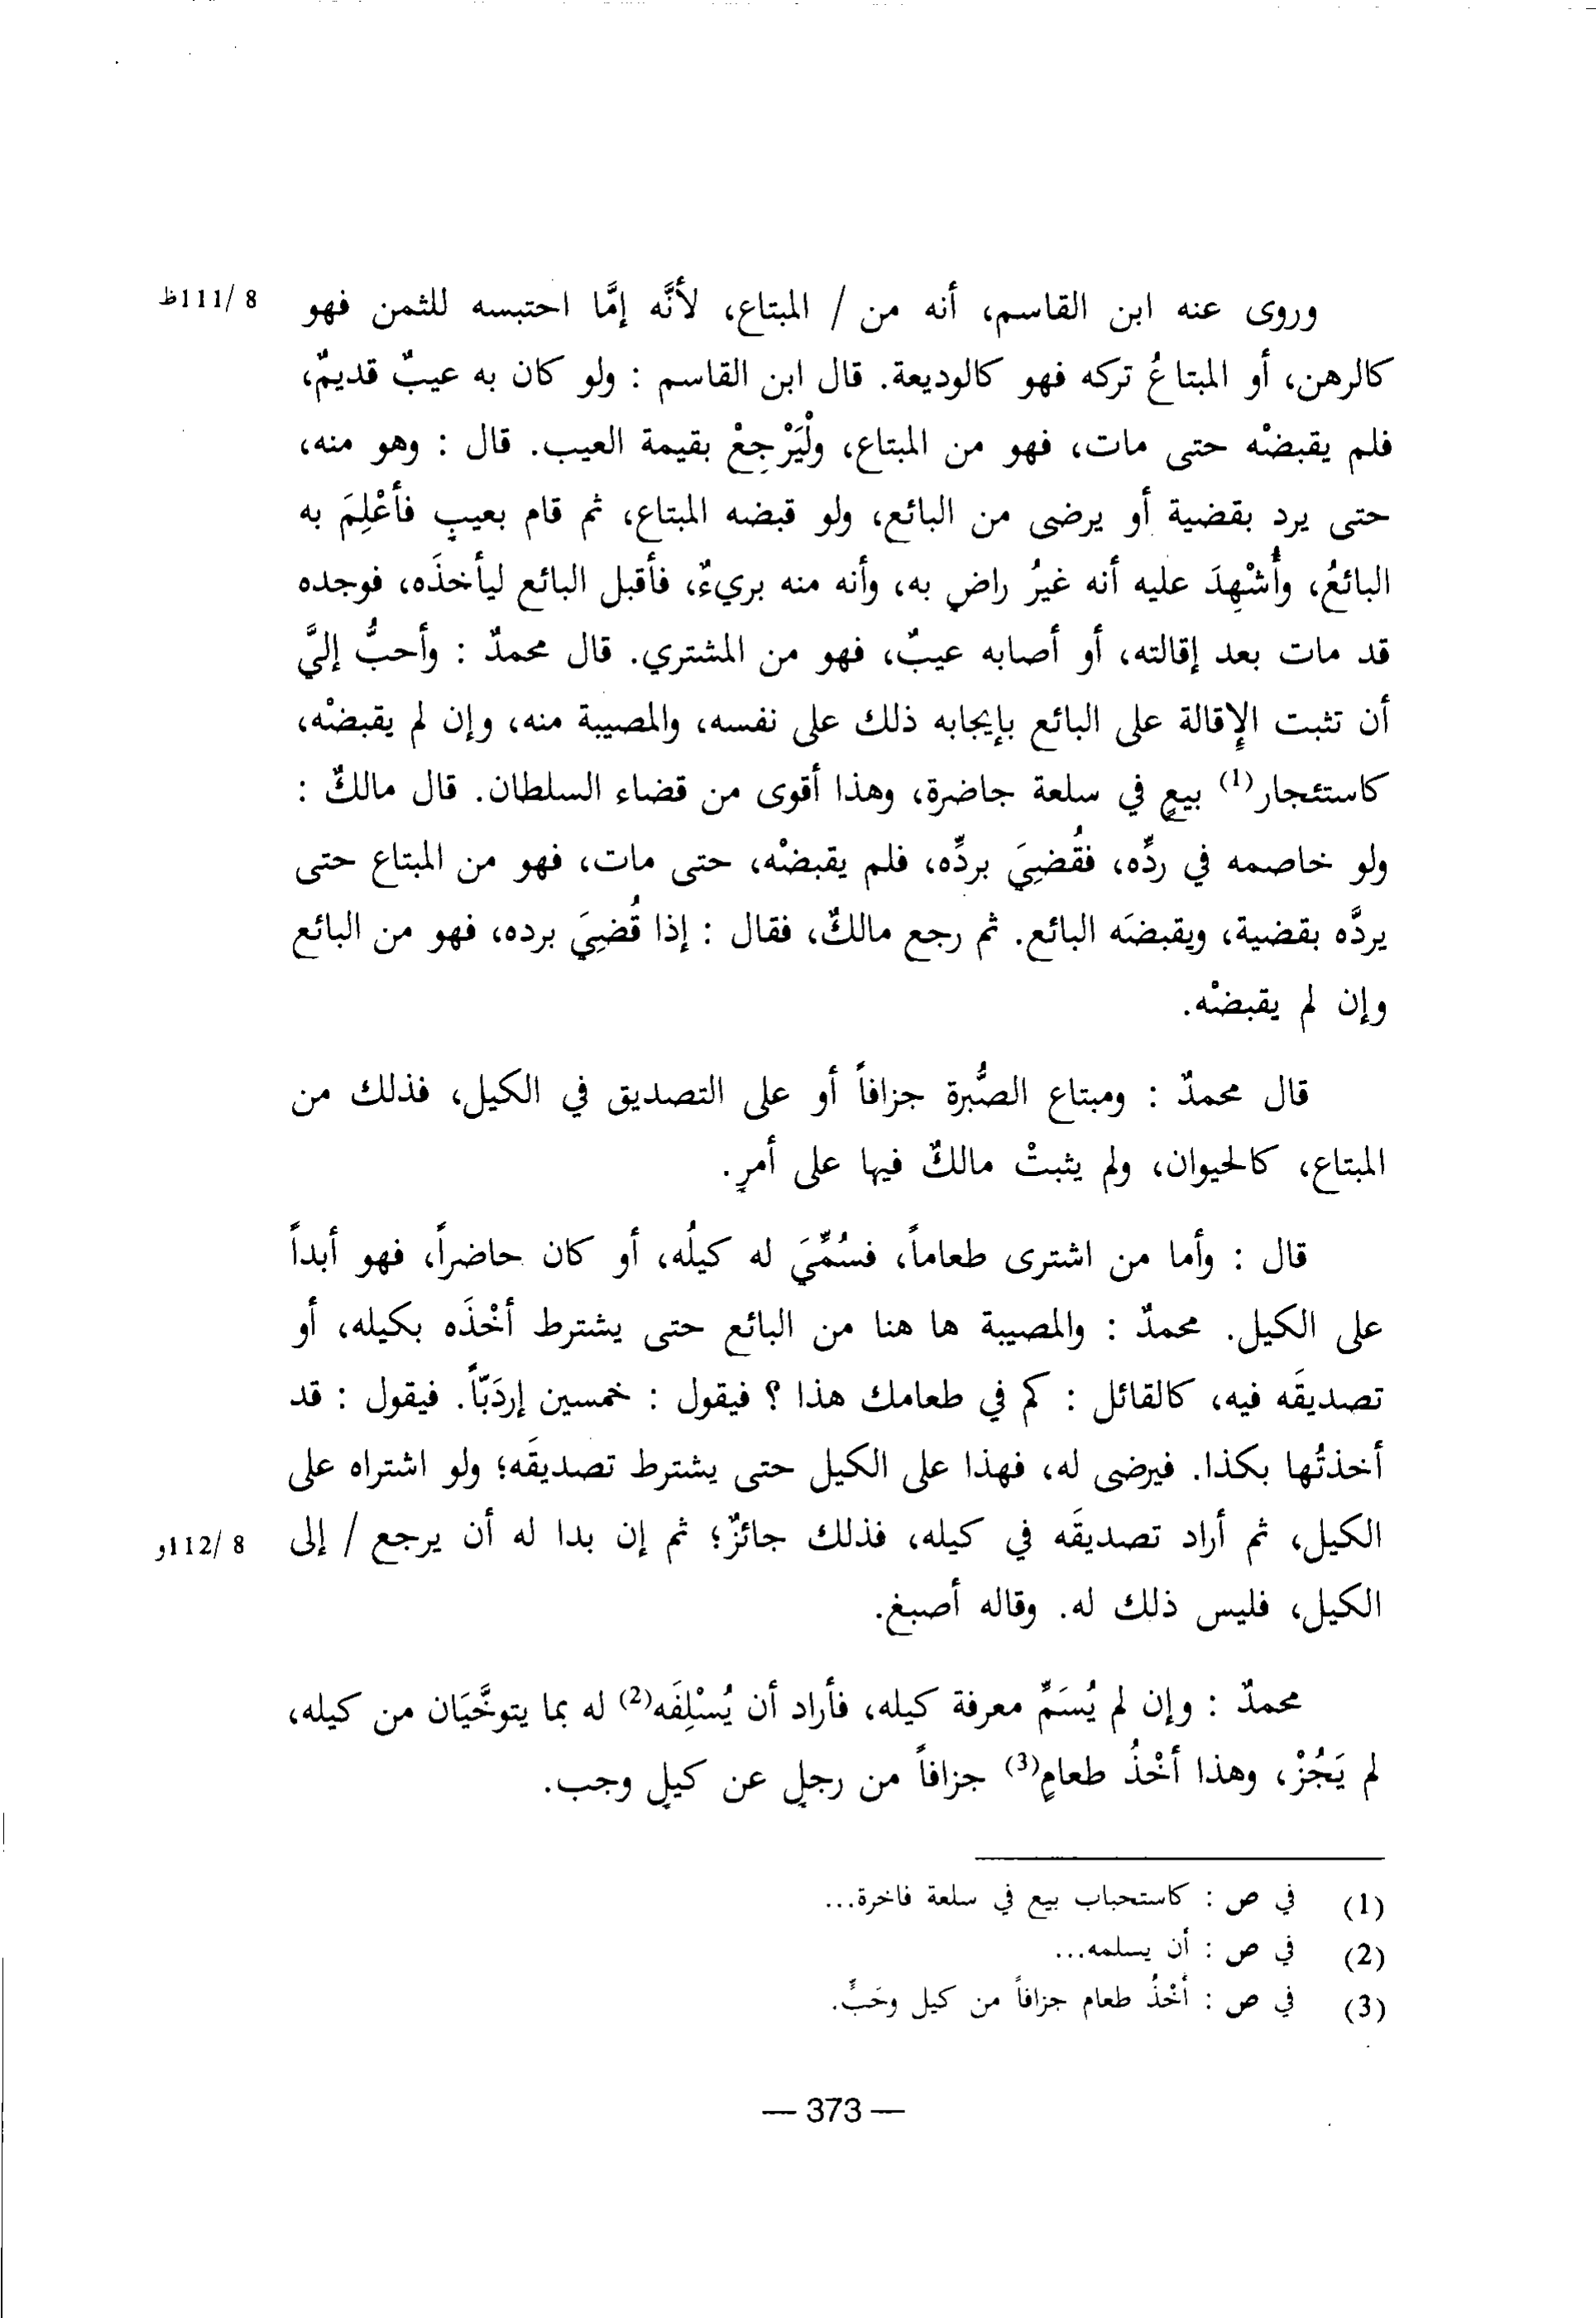 وروى عنه ابن القاسم، أنه من / المبتاع، لأنَّه إمَّا احتبسه للثمن فهو 8 /111ظ
كالرهن، أو المبتاعُ تركه فهو كالوديعة. قال ابن القاسم : ولو كان به عيبٌ قديمٌ،
فلم يقبضْه حتى مات، فهو من المبتاع، ولْيَرْجِعْ بقيمة العيب. قال : وهو منه،
حتى يرد بقضية أو يرضى من البائع، ولو قبضه المبتاع، ثم قام بعيبٍ فأعْلِمَ به
البائعُ، وأُشْهِدَ عليه أنه غيرُ راضٍ به، وأنه منه بريءٌ، فأقبل البائع ليأخذَه، فوجده
قد مات بعد إقالته، أو أصابه عيبٌ، فهو من المشتري. قال محمدٌ : وأحبُّ إليَّ
أن تثبت الإقالة على البائع بإيجابه ذلك على نفسه، والمصيبة منه، وإن لم يقبضْه،
كاستئجار(1) بيعٍ في سلعة حاضرة، وهذا أقوى من قضاء السلطان. قال مالكٌ :
ولو خاصمه في ردِّه، فقُضِيَ بردِّه، فلم يقبضْه، حتى مات، فهو من المبتاع حتى
يردَّه بقضية، ويقبضَه البائع. ثم رجع مالكٌ، فقال : إذا قُضِيَ برده، فهو من البائع
وإن لم يقبضْه.
قال محمدٌ : ومبتاع الصُّبرة جزافاً أو على التصديق في الكيل، فذلك من
المبتاع، كالحيوان، ولم يثبتْ مالكٌ فيها على أمرٍ.
قال : وأما من اشترى طعاماً، فسُمِّيَ له كيلُه، أو كان حاضراً، فهو أبداً
على الكيل. محمدٌ : والمصيبة ها هنا من البائع حتى يشترط أخْذَه بكيله، أو
تصديقَه فيه، كالقائل : كم في طعامك هذا ؟ فيقول : خمسين إردَبّاً. فيقول : قد
أخذتُها بكذا. فيرضى له، فهذا على الكيل حتى يشترط تصديقَه؛ ولو اشتراه على
الكيل، ثم أراد تصديقَه في كيله، فذلك جائزٌ؛ ثم إن بدا له أن يرجع / إلى 8 /112و
الكيل، فليس ذلك له. وقاله أصبغ.
محمدٌ : وإن لم يُسَمِّ معرفة كيله، فأراد أن يُسْلِفَه(2) له بما يتوخَّيَان من كيله،
لم يَجُزْ، وهذا أخْذُ طعامٍ(3) جزافاً من رجلٍ عن كيلٍ وجب.
(1) في ص : كاستحباب بيع في سلعة فاخرة...
(2) في ص : أن يسلمه...
(3) في ص : أخْذُ طعام جزافاً من كيل وحَبٍّ.
— 373 —